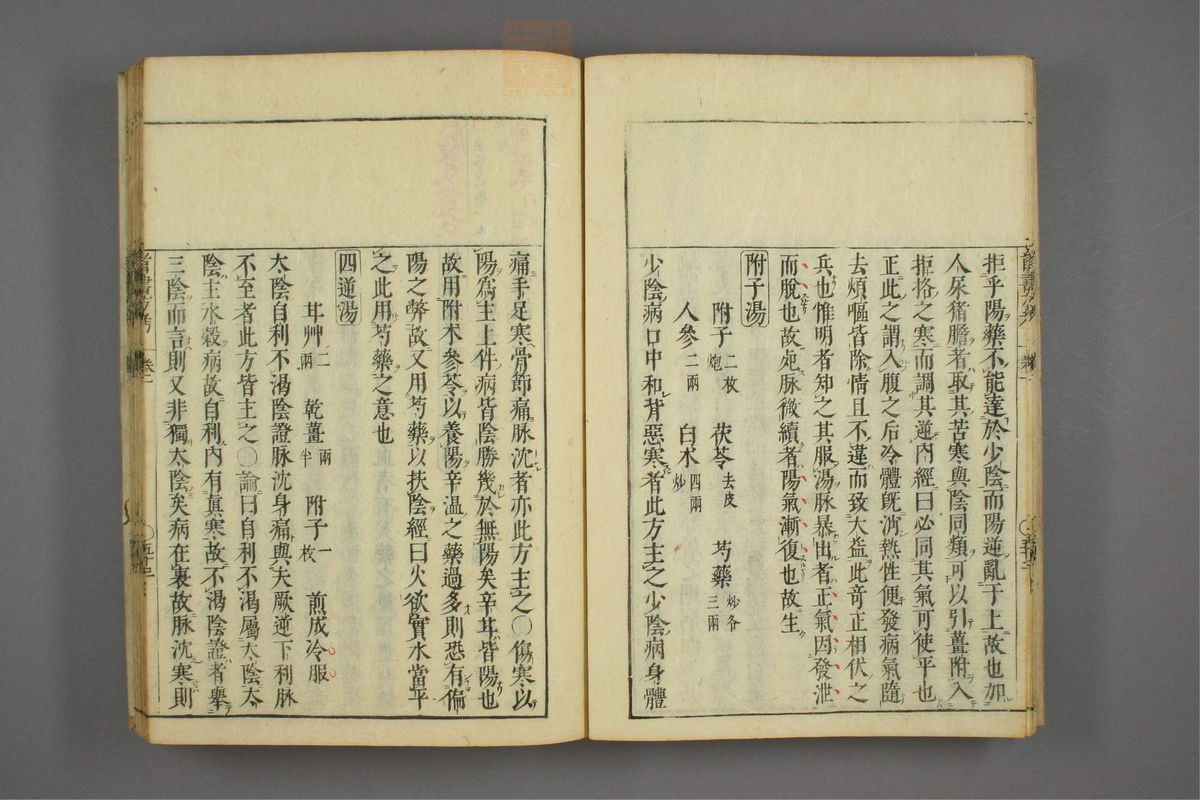 拒乎陽藥不能達於少陰而陽逆亂于上故也加
人尿猪膽者取其苦寒與陰同類可以引薑附入
拒挌之寒而調其逆內經曰必同其氣可使平也
正此之謂入腹之后冷體旣消熱性便發病氣隨
去煩嘔皆除情且不違而致大益此竒正相伏之
兵也惟明者知之其服湯脉暴出者正氣因發泄
而脫也故死脉微續者陽氣漸復也故生
附子湯
附子二枚炮 茯苓去皮 芍藥炒各三兩
人參二兩 白朮四兩炒
少陰病口中和背惡寒者此方主之少陰病身體
痛手足寒骨節痛脉沈者亦此方主之〇傷寒以
陽爲主上件病皆陰勝幾於無陽矣辛甘皆陽也
故用附朮參苓以養陽辛溫之藥過多則恐有偏
陽之弊故又用芍藥以扶陰經曰火欲實水當平
之此用芍藥之意也
四逆湯
甘艸二兩 乾薑兩半 附子一枚 煎成冷服
太陰自利不渴陰證脉沈身痛與夫厥逆下利脉
不至者此方皆主之〇論曰自利不渴屬太陰太
陰主水穀病故自利內有眞寒故不渴陰證者舉
三陰而言則又非獨太陰矣病在裏故脉沈寒則